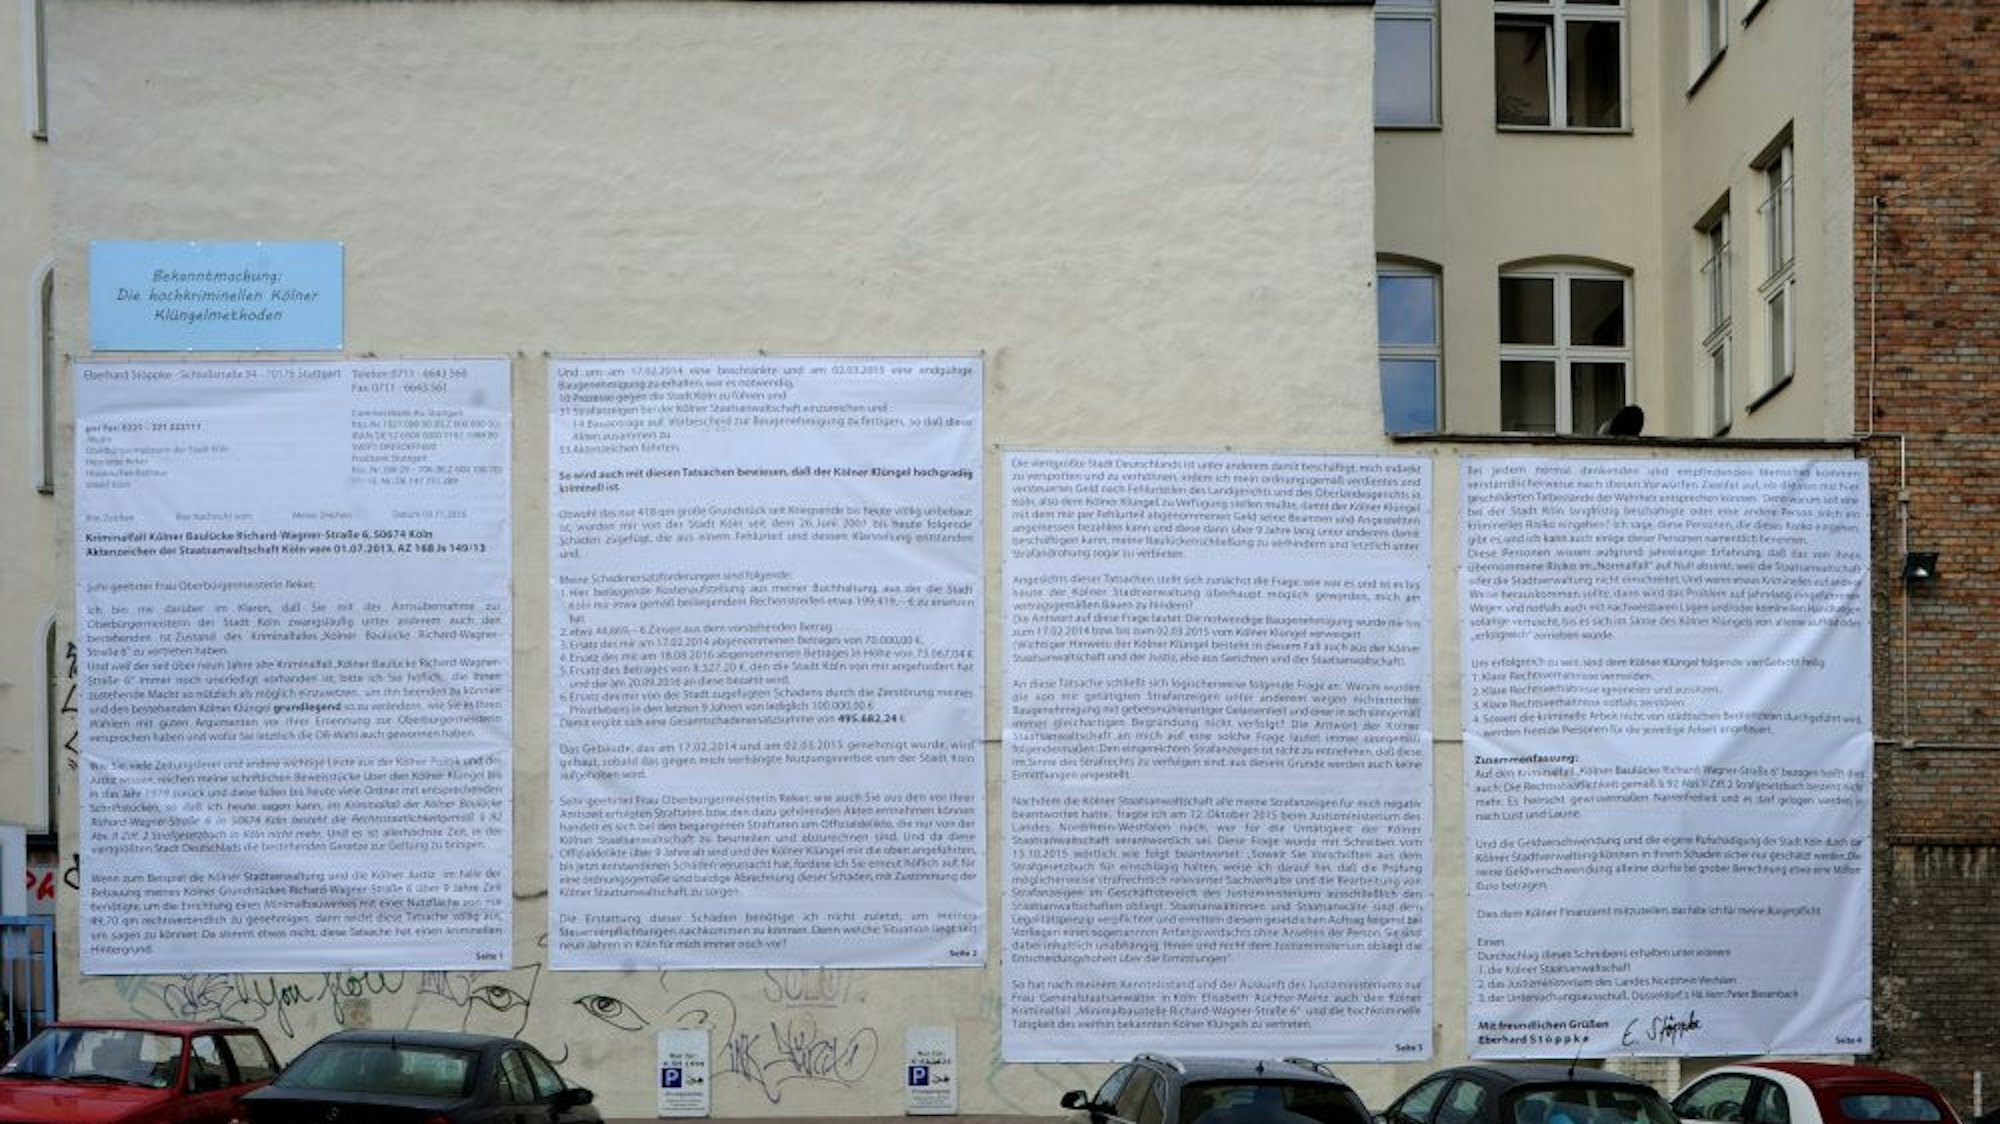 Bekanntmachung:
Die hochkriminellen Kölner
Klüngelmethoden
Eberhard Stöppke - Schloßstraße 94 - 70176 Stuttgart
Telefon 0711 - 6643 560
Fax 0711 - 6643 561
per Fax: 0221 - 221 222111
Oberbürgermeisterin der Stadt Köln
Henriette Reker
Historisches Rathaus
Ihre Zeichen Ihre Nachricht vom Meine Zeichen Datum 03.11.2016
Kriminalfall Kölner Baulücke Richard-Wagner-Straße 6, 50674 Köln
Aktenzeichen der Staatsanwaltschaft Köln vom 01.07.2013, AZ 168 Js 149/13
Sehr geehrte Frau Oberbürgermeisterin Reker,
ich bin mir darüber im Klaren, daß Sie mit der Amtsübernahme zur
Oberbürgermeisterin der Stadt Köln zwangsläufig unter anderem auch den
bestehenden Ist-Zustand des Kriminalfalles „Kölner Baulücke Richard-Wagner-
Straße 6" zu vertreten haben.
Und weil der seit über neun Jahre alte Kriminalfall „Kölner Baulücke Richard-Wagner-
Straße 6" immer noch unerledigt vorhanden ist, bitte ich Sie höflich, die Ihnen
zustehende Macht so nützlich als möglich einzusetzen, um ihn beenden zu können
und den bestehenden Kölner Klüngel grundlegend so zu verändern, wie Sie es Ihren
Wählern mit guten Argumenten vor Ihrer Ernennung zur Oberbürgermeisterin
versprochen haben und wofür Sie letztlich die OB-Wahl auch gewonnen haben.
Wie Sie, viele Zeitungsleser und andere wichtige Leute aus der Kölner Politik und der
Justiz wissen, reichen meine schriftlichen Beweisstücke über den Kölner Klüngel bis
in das Jahr 1979 zurück und diese füllen bis heute viele Ordner mit entsprechenden
Schriftstücken, so daß ich heute sagen kann, im Kriminalfall der Kölner Baulücke
Richard-Wagner-Straße 6 in 50674 Köln besteht die Rechtsstaatlichkeit gemäß § 92
Abs. II Ziff. 2 Strafgesetzbuch in Köln nicht mehr. Und es ist allerhöchste Zeit, in der
viertgrößten Stadt Deutschlads die bestehenden Gesetze zur Geltung zu bringen.
Wenn zum Beispiel die Kölner Stadtverwaltung und die Kölner Justiz im Falle der
Bebauung meines Kölner Grundstückes Richard-Wagner-Straße 6 über 9 Jahre Zeit
benötigte, um die Errichtung eines Minimalbauwerkes mit einer Nutzfläche von nur
49,70 qm rechtsverbindlich zu genehmigen, dann reicht diese Tatsache völlig aus,
um sagen zu können: Da stimmt etwas nicht, diese Tatsache hat einen kriminellen
Hintergrund.
Seite 1
Und um am 17.02.2014 eine beschränkte und am 02.03.2015 eine endgültige
Baugenehmigung zu erhalten, war es notwendig,
10 Prozesse gegen die Stadt Köln zu führen und
31 Strafanzeigen bei der Kölner Staatsanwaltschaft einzureichen und
14 Bauanträge auf Vorbescheid zur Baugenehmigung zu fertigen, so daß diese
Akten zusammen zu
53 Aktenzeichen führten.
So wird auch mit diesen Tatsachen bewiesen, daß der Kölner Klüngel hochgradig
kriminell ist.
Obwohl das nur 418 qm große Grundstück seit Kriegsende bis heute völlig unbebaut
ist, wurden mir von der Stadt Köln seit dem 26. Juni 2007 bis heute folgende
Schäden zugefügt, die aus einem Fehlurteil und dessen Klarstellung entstanden
sind.
Meine Schadenersatzforderungen sind folgende:
1. Hier beiliegende Kostenaufstellung aus meiner Buchhaltung, aus der die Stadt
Köln mir etwa gemäß beiliegendem Rechenstreifen etwa 199.416,-- € zu ersetzen
hat.
2. etwa 44.869,-- € Zinsen aus dem vorstehenden Betrag
3. Ersatz des mir am 17.02.2014 abgenommenen Betrages von 70.000,00 €
4. Ersatz des mir am 18.08.2016 abgenommenen Betrages in Höhe von 73.067,04 €
5. Ersatz des Betrages von 8.327,20 €, den die Stadt Köln von mir angefordert hat
und der am 20.09.2016 an diese bezahlt wird.
6. Ersatz des mir von der Stadt zugefügten Schadens durch die Zerstörung meines
Privatlebens in den letzten 9 Jahren von lediglich 100.000,00 €
Damit ergibt sich eine Gesamtschadenersatzsumme von 495.682,24 €
Das Gebäude, das am 17.02.2014 und am 02.03.2015 genehmigt wurde, wird
gebaut, sobald das gegen mich verhängte Nutzungsverbot von der Stadt Köln
aufgehoben wird.
Sehr geehrte Frau Oberbürgermeisterin Reker, wie auch Sie aus den vor Ihrer
Amtszeit erfolgten Straftaten bzw. den dazu gehörenden Akten entnehmen können
handelt es sich bei den begangenen Straftaten um Offizialdelikte, die nur von der
Kölner Staatsanwaltschaft zu beurteilen und abzurechnen sind. Und da diese
Offizialdelikte über 9 Jahre alt sind und der Kölner Klüngel mir die oben angeführten,
bis jetzt entstandenen Schäden verursacht hat, fordere ich Sie erneut höflich auf, für
eine ordnungsgemäße und baldige Abrechnung dieser Schäden, mit Zustimmung der
Kölner Staatsanwaltschaft, zu sorgen.
Die Erstattung dieser Schäden benötige ich nicht zuletzt, um meinen
Steuerverpflichtungen nachkommen zu können. Denn welche Situation liegt seit
neun Jahren in Köln für mich immer noch vor?
Seite 2
Die viertgrößte Stadt Deutschlands ist unter anderem damit beschäftigt, mich indirekt
zu verspotten und zu verhöhnen, indem ich mein ordnungsgemäß verdientes und
versteuertes Geld nach Fehlurteilen des Landgerichts und des Oberlandesgerichts in
Köln, also dem Kölner Klüngel zu Verfügung stellen mußte, damit der Kölner Klüngel
mit dem mir per Fehlurteil abgenommenen Geld seine Beamten und Angestellten
angemessen bezahlen kann und diese dann über 9 Jahre lang unter anderem damit
beschäftigen kann, meine Baulückenschließung zu verhindern und letztlich unter
Strafandrohung sogar zu verbieten.
Angesichts dieser Tatsachen stellt sich zunächst die Frage, wie war es und ist es bis
heute der Kölner Stadtverwaltung überhaupt möglich geworden, mich am
vertragsgemäßen Bauen zu hindern?
Die Antwort auf diese Frage lautet: Die notwendige Baugenehmigung wurde mir bis
zum 17.02.2014 bzw. bis zum 02.03.2015 vom Kölner Klüngel verweigert.
(Wichtiger Hinweis: der Kölner Klüngel besteht in diesem Fall auch aus der Kölner
Staatsanwaltschaft und der Justiz, also aus Gerichten und der Staatsanwaltschaft).
An diese Tatsache schließt sich logischerweise folgende Frage an: Warum wurden
die von mir getätigten Strafanzeigen unter anderem wegen nichterteilter
immer gleichartigen Begründung nicht verfolgt? Die Antwort der Kölner
Staatsanwaltschaft an mich auf eine solche Frage lautet immer sinngemäß
folgendermaßen: Den eingereichten Strafanzeigen ist nicht zu entnehmen, daß diese
im Sinne des Strafrechts zu verfolgen sind, aus diesem Grunde werden auch keine
Ermittlungen angestellt.
Nachdem die Kölner Staatsanwaltschaft alle meine Strafanzeigen für mich negativ
beantwortet hatte, fragte ich am 12. Oktober 2015 beim Justizministerium des
Landes Nordrhein-Westfalen nach, wer für die Untätigkeit der Kölner
Staatsanwaltschaft verantwortlich sei. Diese Frage wurde mit Schreiben vom
15.10.2015 wörtlich wie folgt beantwortet: „Soweit Sie Vorschriften aus dem
Strafgesetzbuch für einschlägig halten, weise ich darauf hin, daß die Prüfung
möglicherweise strafrechtlich relevanter Sachverhalte und die Bearbeitung von
Strafanzeigen im Geschäftsbereich des Justizministeriums ausschließlich den
Staatsanwaltschaften obliegt. Staatsanwältinnen und Staatsanwälte sind dem
Legalitätsprinzip verpflichtet und ermitteln diesem gesetzlichen Auftrag folgend bei
Vorliegen eines sogenannten Anfangsverdachts ohne Ansehen der Person. Sie sind
dabei inhaltlich unabhängig. Ihnen und nicht dem Justizministerium obliegt die
Entscheidungshoheit über die Ermittlungen".
So hat nach meinem Kenntnisstand und der Auskunft des Justizministeriums nur
Frau Generalstaatsanwältin in Köln Elisabeth Auchter-Mainz auch den Kölner
Kriminalfall „Minimalbaustelle Richard-Wagner-Straße 6" und die hochkriminelle
Tätigkeit des weithin bekannten Kölner Klüngels zu vertreten.
Seite 3
Bei jedem normal denkenden und empfindenden Menschen kommen
verständlicherweise nach diesen Vorwürfen Zweifel auf, ob die von mir hier
geschilderten Tatbestände der Wahrheit entsprechen können. Denn warum soll eine
bei der Stadt Köln langfristig beschäftigte oder eine andere Person mich ein
kriminelles Risiko eingehen? Ich sage, diese Personen, die dieses Risiko eingehen,
gibt es, und ich kann auch einige dieser Personen namentlich benennen.
Diese Personen wissen aufgrund jahrelanger Erfahrung, daß das von ihnen
übernommene Risiko im „Normalfall" auf Null absinkt, weil die Staatsanwaltschaft
oder die Stadtverwaltung nicht einschreitet. Und wenn etwas Kriminelles auf andere
Weise herauskommen sollte, dann wird das Problem auf jahrelang eingefahrenen
Wegen und notfalls auch mit nachweisbaren Lügen und/oder kriminellen Handlungen
solange vertuscht, bis es sich im Sinne des Kölner Klüngels von alleine auflöst oder
„erfolgreich" zerrieben wurde.
Um erfolgreich zu sein, sind dem Kölner Klüngel folgende vier Gebote heilig
1. Klare Rechtsverhältnisse vermeiden.
2. Klare Rechtsverhältnisse ignorieren und aussitzen.
3. Klare Rechtsverhältnisse notfalls zerstören.
4. Soweit die kriminelle Arbeit nicht von städtischen Bediensteten durchgeführt wird,
werden fremde Personen für die jeweilige Arbeit angeheuert.
Zusammenfassung:
Auf den Kriminalfall „Kölner Baulücke Richard-Wagner-Straße 6" bezogen heißt dies
auch: Die Rechtsstaatlichkeit gemäß § 92 Abs. II Ziff. 2 Strafgesetzbuch besteht nicht
mehr. Es herrscht gewissermaßen Narrenfreiheit und es darf gelogen werden
nach Lust und Laune.
Und die Geldverschwendung und die eigene Rufschädigung der Stadt Köln durch die
Kölner Stadtverwaltung können in ihrem Schaden sicher nur geschätzt werden. Die
reine Geldverschwendung alleine dürfte bei grober Berechnung etwa eine Million
Euro betragen.
Dies dem Kölner Finanzamt mitzuteilen, das halte ich für meine Bürgerpflicht
Einen
Durchschlag dieses Schreibens erhalten unter anderem
1. die Kölner Staatsanwaltschaft
2. das Justizministerium des Landes Nordrhein-Westfalen
3. der Untersuchungsausschuß, Düsseldorf z. Hd. Herrn Peter Biesenbach
Mit freundlichen Grüßen
Eberhard Stöppke
E. Stöppke
Seite 4
you
Nur für:
P
Nur für:
P